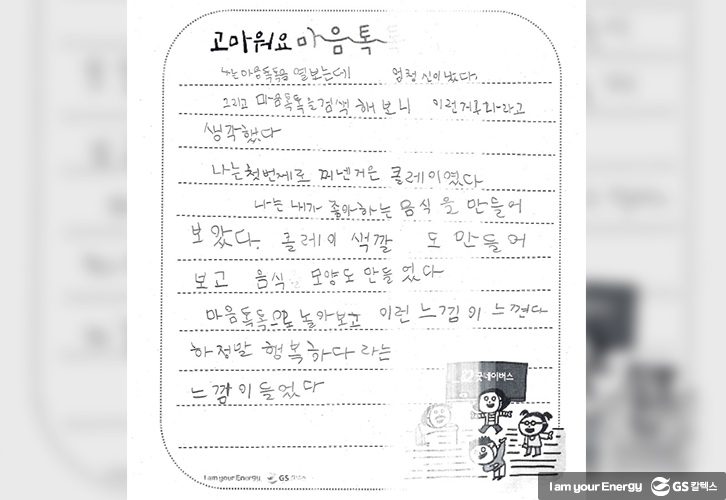 고마워요 마음톡톡
나는마음톡톡을 열보는데 엄청 신이났다.
그리고 마음톡톡을검색 해보니 이런거구라라고
생각했다
나는첫번째로 꺼낸거은 클레이였다
나는 내가 좋아하는 음식을 만들어
보았다. 클레이 색깔 도 만들어
보고 음식 모양도만들었다
마음톡톡으로 놀아보고 이런 느낌이 느껴다
하정말 행복하다 라는
느낌이들었다
굿네이버스
I am your Energy GS칼텍스
I am your Energy GS칼텍스